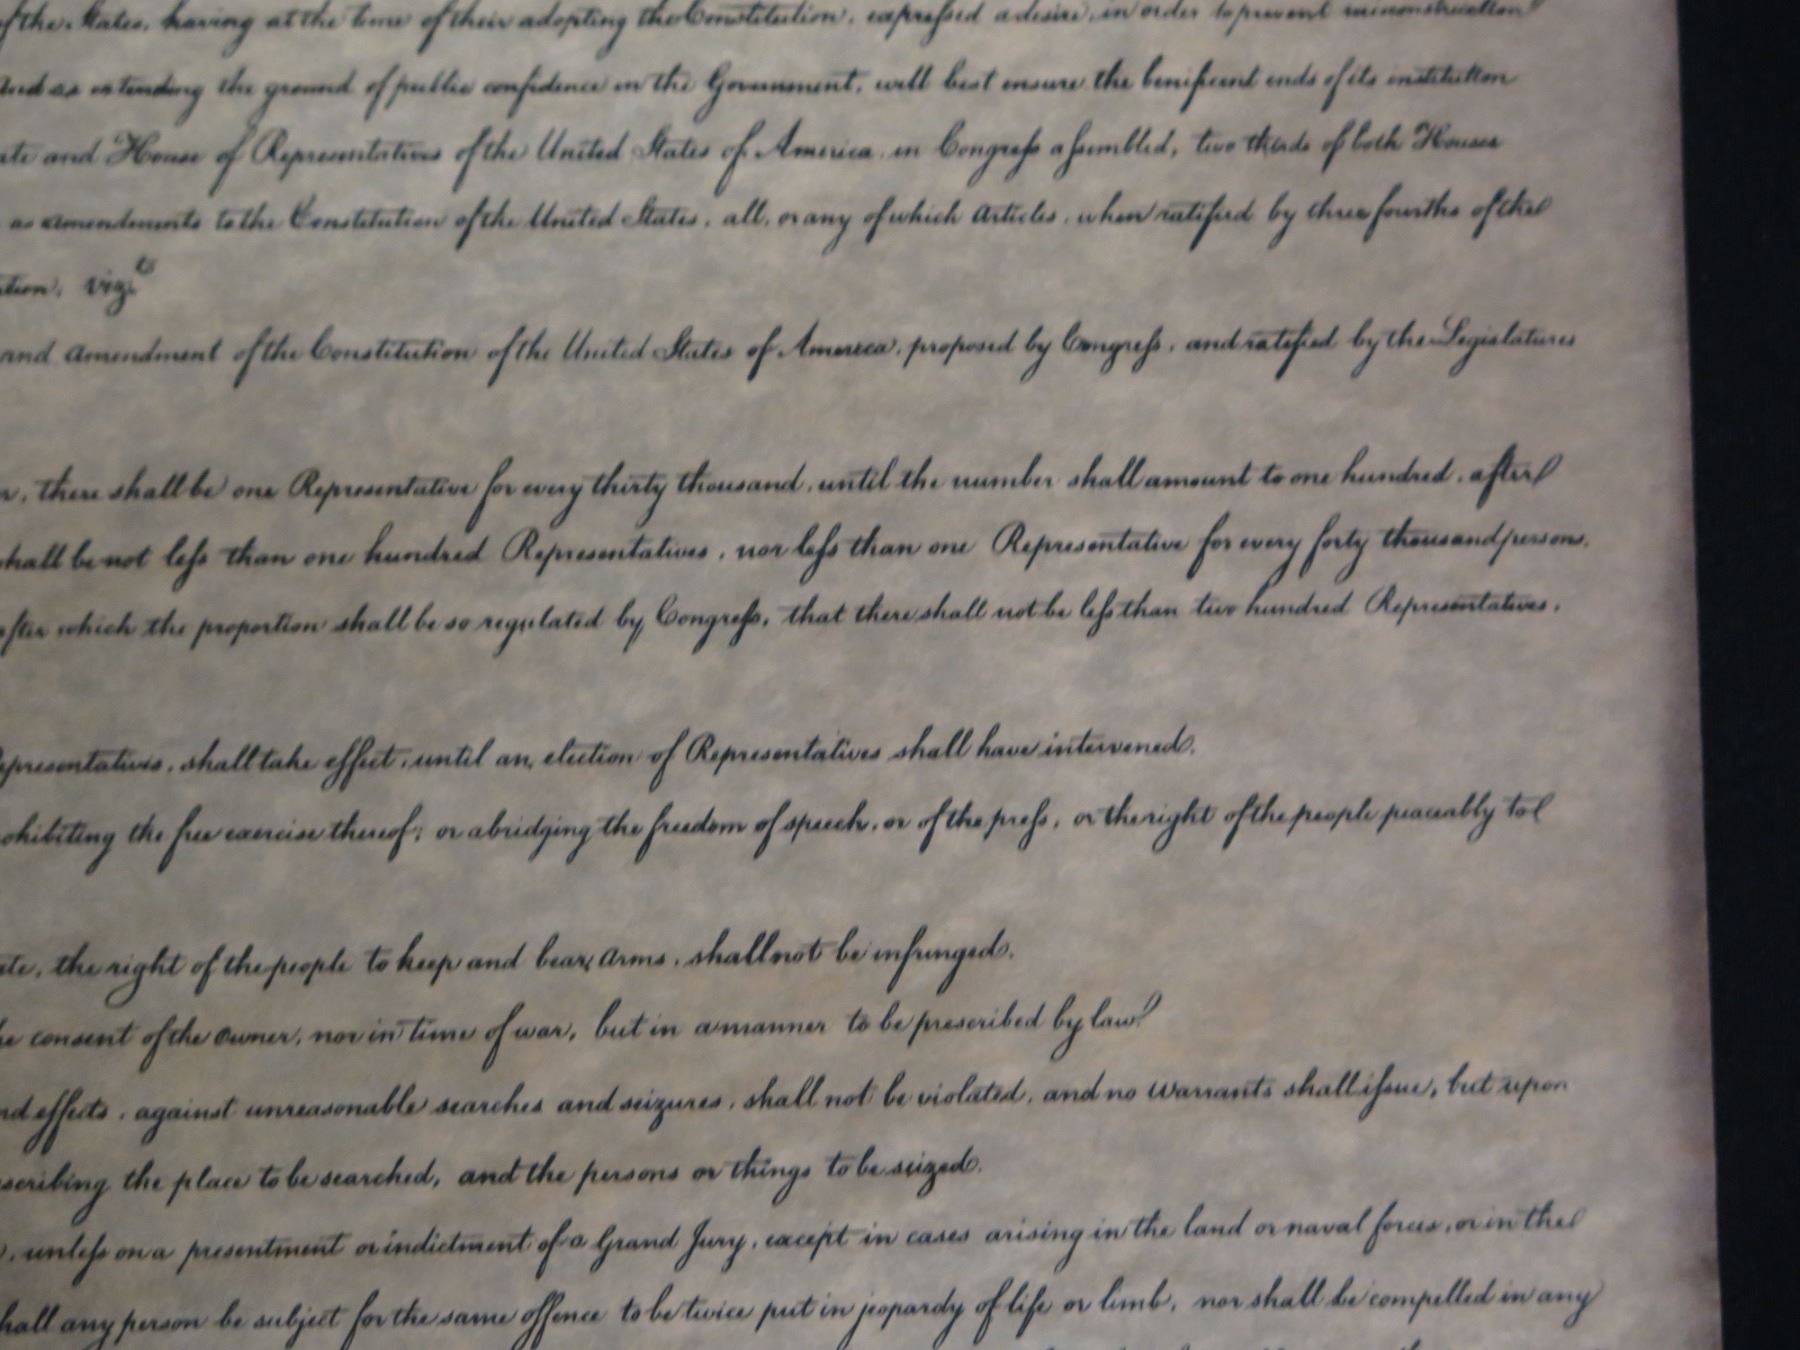 of the States, having at the time of their adopting the Constitution, expressed a desire, in order to prevent misconstruction
And as extending the ground of public confidence in the Government, will best ensure the benificent ends of its institution
ate and House of Representatives of the United States of America, in Congress assembled, two thirds of both Houses
as amendments to the Constitution of the United States, all, or any of which Articles, when ratified by three fourths of the
tion; vizt
and amendment of the Constitution of the United States of America, proposed by Congress, and ratified by the Legislatures
n, there shall be one Representative for every thirty thousand, until the number shall amount to one hundred, after
shall be not less than one hundred Representatives, nor less than one Representative for every forty thousand persons,
after which the proportion shall be so regulated by Congress, that there shall not be less than two hundred Representatives,
epresentatives, shall take effect, until an election of Representatives shall have intervened.
ohibiting the free exercise thereof; or abridging the freedom of speech, or of the press, or the right of the people peaceably to
ate, the right of the people to keep and bear Arms, shall not be infringed.
he consent of the Owner, nor in time of war, but in a manner to be prescribed by law.
nd effects, against unreasonable searches and seizures, shall not be violated, and no Warrants shall issue, but upon
scribing the place to be searched, and the persons or things to be seized.
, unless on a presentment or indictment of a Grand Jury, except in cases arising in the land or naval forces, or in the
hall any person be subject for the same offence to be twice put in jeopardy of life or limb, nor shall be compelled in any